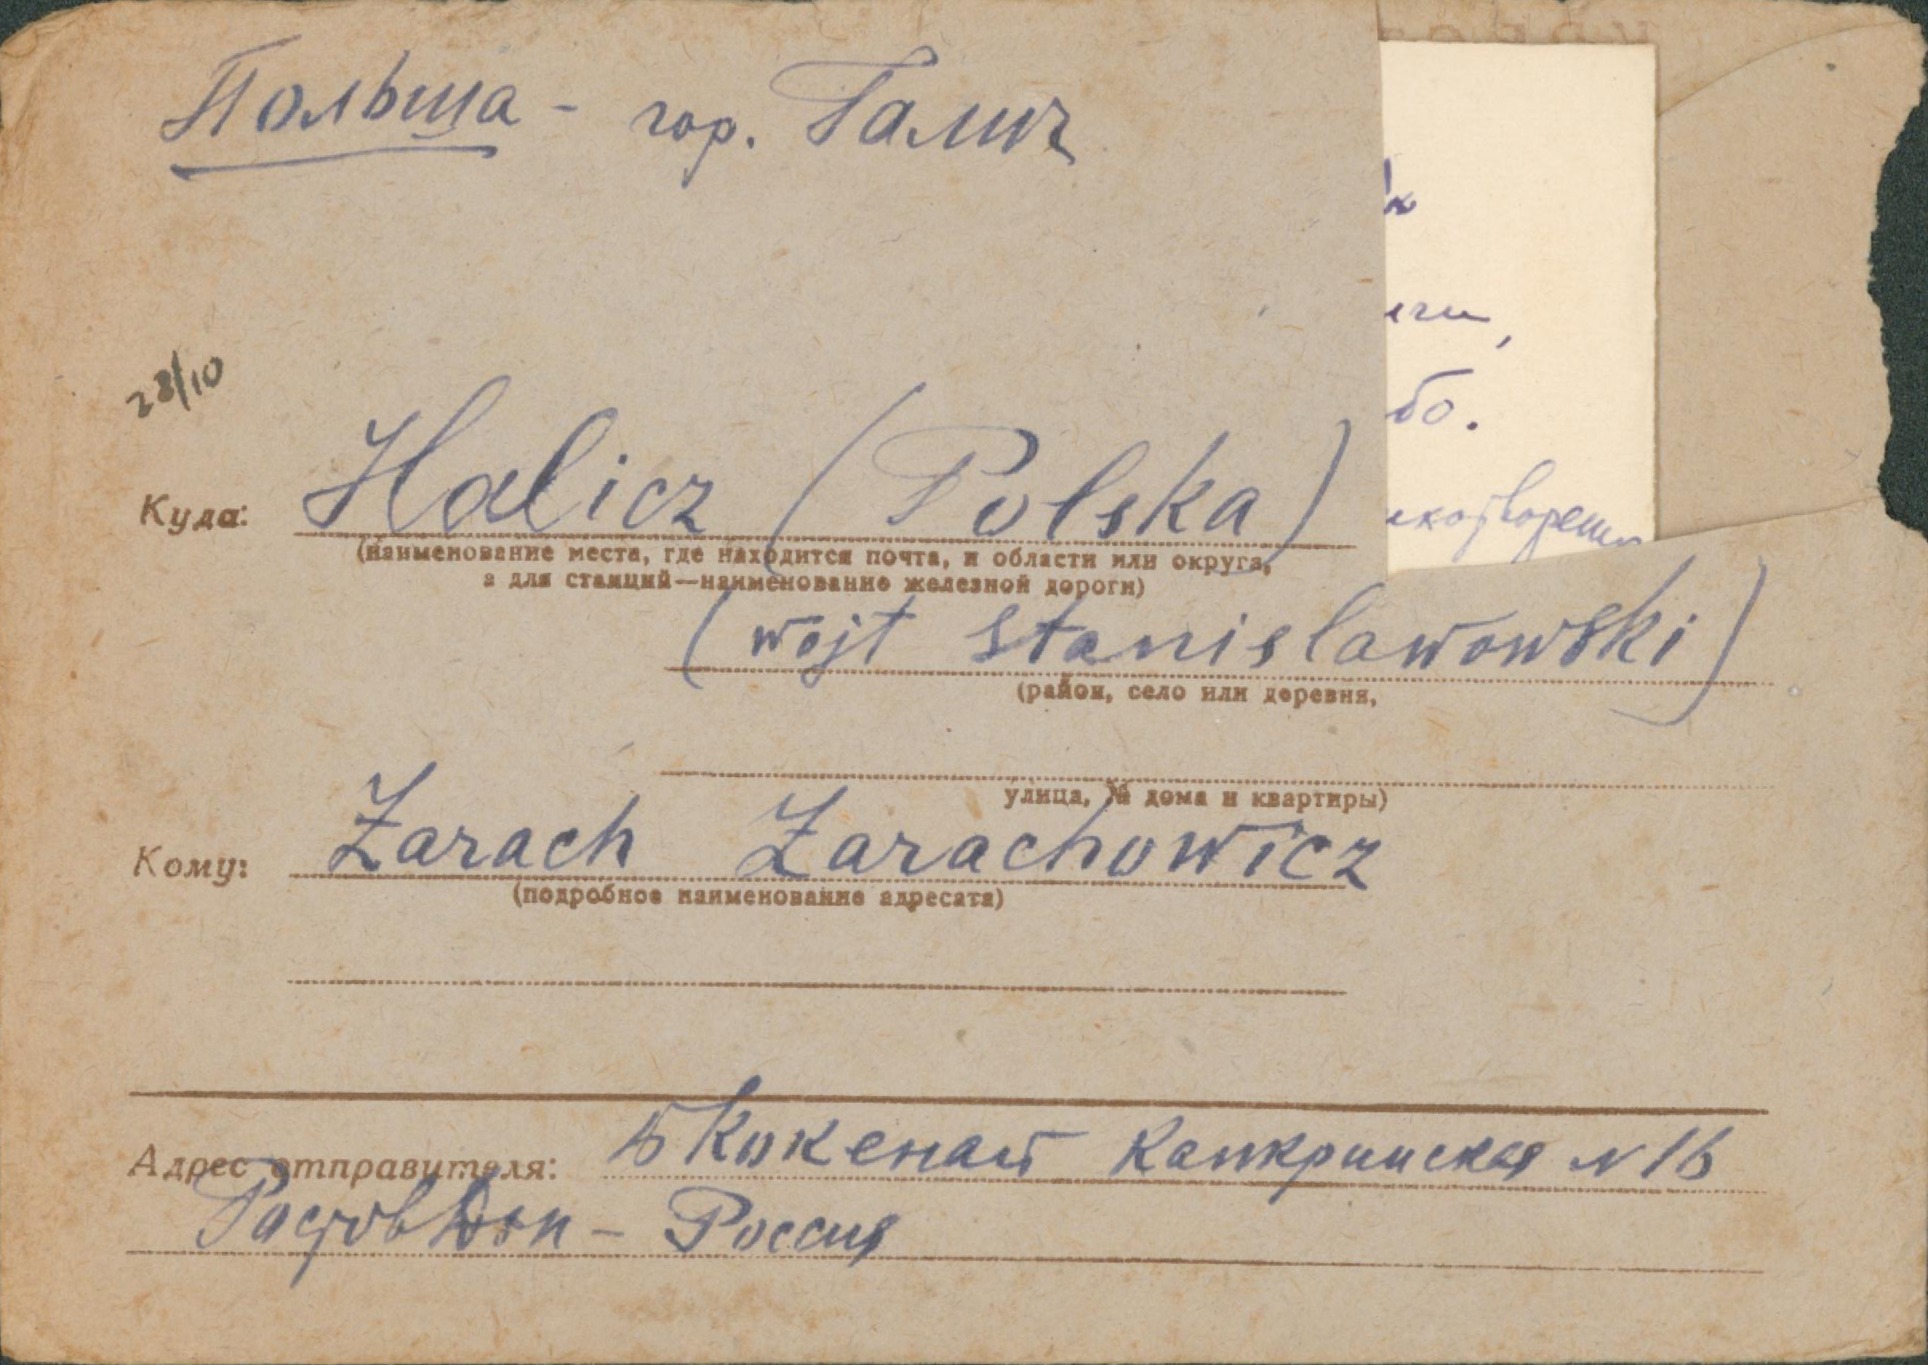 Польша - гор. Галич
28/10
Куда: Halicz (Polska)
(наименование места, где находится почта, и области или округа,
а для станций—наименование железной дороги)
(wojt Stanislawowski)
(район, село или деревня,
улица, № дома и квартиры)
Кому: Zarach Zarachowicz
(подробное наименование адресата)
Адрес отправителя: Б Кокенаит Канкринская N 16
Ростов Дон - Россия
бо.